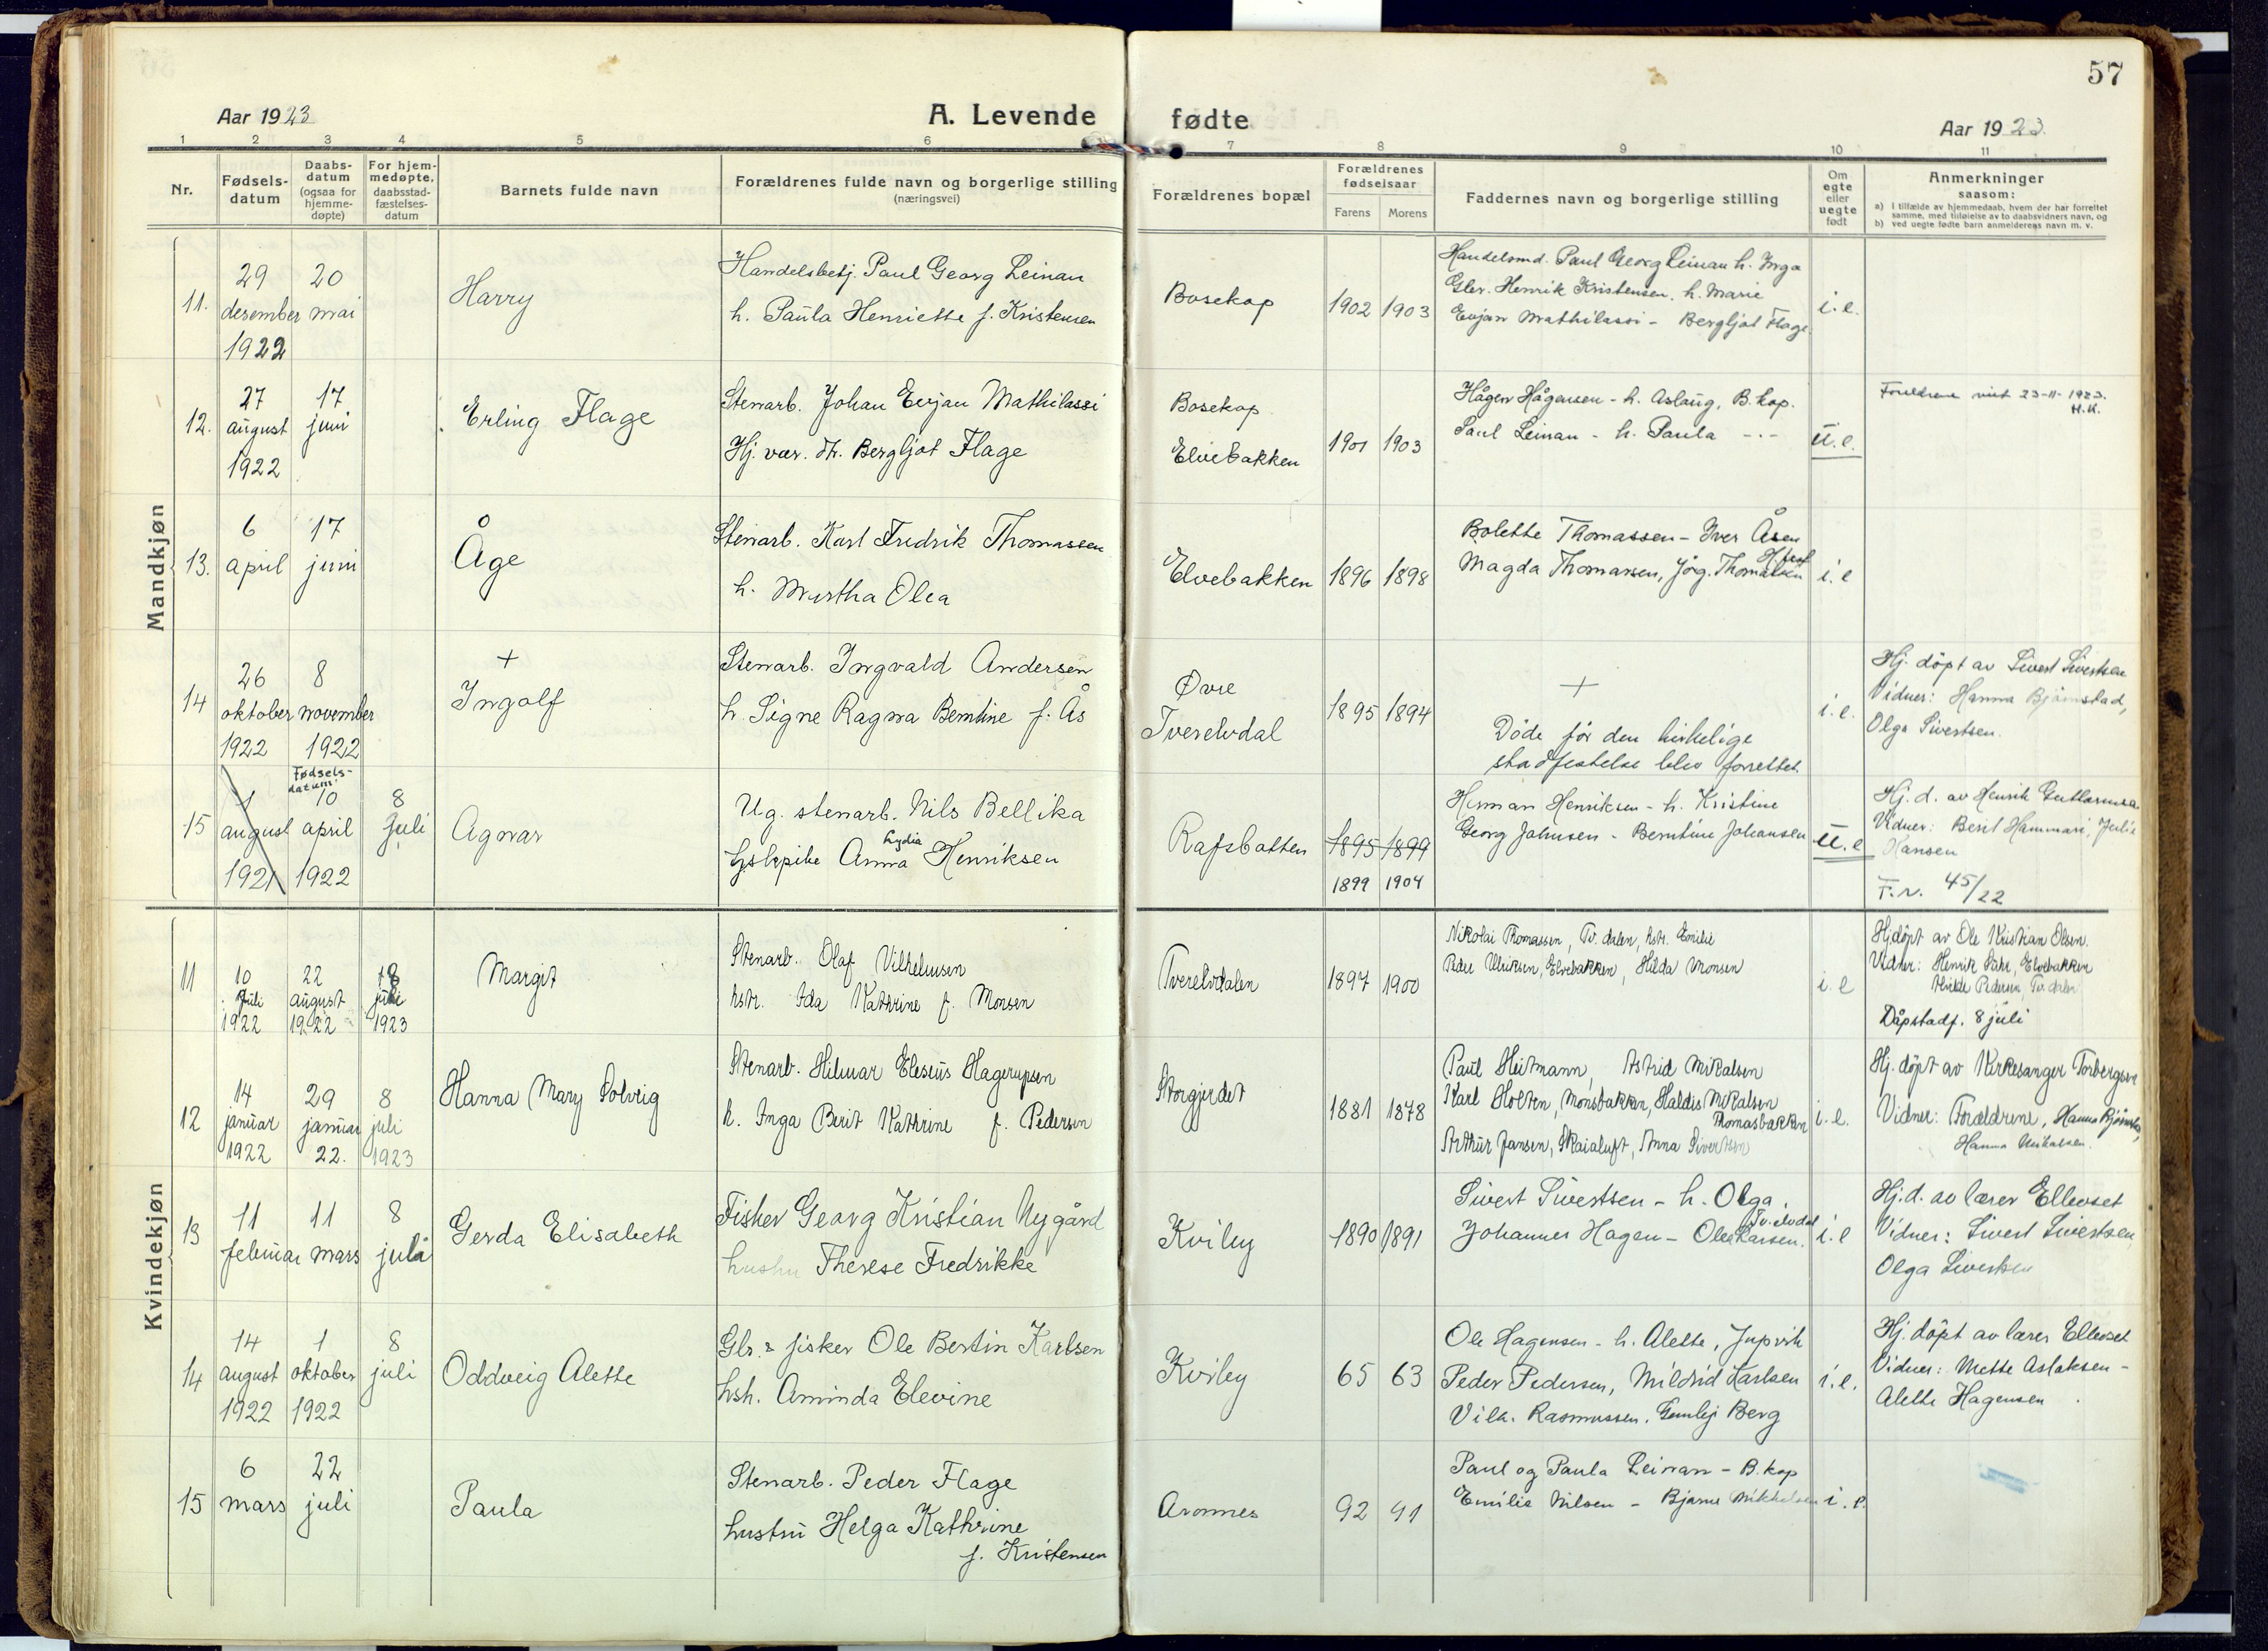 57
Aar 1923
A. Levende fødte
Aar 1923.
1 2 3 4 5 6 7 8 9 10 11
Nr.
Fødsels-
datum
Daabs-
datum
(ogsaa for
hjemme-
døpte)
For hjem-
medøpte,
daabsstad-
fæstelses-
datum
Barnets fulde navn
Forældrenes fulde navn og borgerlige stilling
(næringsvei)
Forældrenes bopæl
Forældrenes
fødselsaar
Farens Morens
Faddernes navn og borgerlige stilling
Om
egte
eller
uegte
født
Anmerkninger
saasom:
a) I tilfælde av hjemmedaab, hvem der har forrettet
samme, med tilføielse av to daabsvidners navn, og
b) ved uegte fødte barn anmelderens navn m. v.
Mandkjøn
11.
29
desember
1922
20
mai
Harry
Handelsbetj. Paul Georg Leinan
h. Paula Henriette f. Kristensen
Bosekop
1902 1903
Handelsmd. Paul Georg Leinan h. Inga
Gbr. Henrik Kristensen, h. Marie
Evjan Mathilassi - Bergljot Flage.
i.e.
12.
27
august
1922
17
juni
Erling Flage
Stenarb. Johan Evjan Mathilassi
Hj. vær. dr. Bergljot Flage
Bosekop
Elvebakken
1901 1903
Hågen Hågensen - h. Aslaug, B.kop.
Paul Leinan - h. Paula -.-
u.e.
Foreldrene viet 23-11-1923.
H.K.
13.
6
april
17
juni
Åge
Stenarb. Karl Fredrik Thomassen
h. Martha Olea
Elvebakken
1896 1898
Bolette Thomassen - Iver Åsen
Magda Thomassen, Jørg. Thomassen
i.e
14
26
oktober
1922
8
november
1922
+
Ingolf
Stenarb. Ingvald Andersen
h. Signe Ragna Berntine f. Ås
Øvre
Tverelvdal
1895 1894
+
Döde för den kirkelige
stadfestelse blev forrettet.
i.e.
Hj. döpt av Sivert Sivertsen
Vidner: Hanna Björnstad,
Olga Sivertsen.
15
1
august
1921
Fødsels-
datum
10
april
1922
8
juli
Agnar
Ug. stenarb. Nils Bellika
Lydia
hslspike Anna Henriksen
Rafsbotten
1895 1899
1899 1904
Herman Henriksen - h. Kristine
Georg Johnsen - Berntine Johansen
u.e
Hj. d. av Henrik
Vidner: Berit Hammari, Julie
Hansen
F.r. 45/22
Kvindekjøn
11
10
juli
1922
22
august
1922
8
juli
1923
Margit
Stenarb. Olaf Vilhelmsen
hstr. Ida Kathrine f. Monsen
Tverelvdalen
1897 1900
Nikolai Thomassen, Tv. dalen, hstr. Emilie
Peder Ulriksen, Elvebakken, Hilda Monsen
i.e
Hjdöpt av Ole Kristian Olsen.
Vidner: Henrik Elvebakken
Pedersen, Tv. dalen
Dåpstadf. 8 juli
12
14
januar
1922
29
januar
22.
8
juli
1923
Hanna Mary Solveig
Stenarb. Hilmar Elesius Hagerupsen
h. Inga Berit Kathrine f. Pedersen
Storgjerdet
1881 1878
Paul Heitmann, Astrid Mikalsen
Karl Holten, Monsbakken, Haldis Mikalsen
Thomasbakken
Arthur Jansen, Skaialuft, Anna Sivertsen
i.e.
Hj. döpt av Kirkesanger Torbergsen
Vidner: Forældrene, Hanna Björnstad,
Hanna Mikalsen.
13
11
februar
11
mars
8
juli
Gerda Elisabeth
Fisker Georg Kristian Nygård
hustru Therese Fredrikke
Kviby
1890 1891
Sivert Sivertsen - h. Olga.
Tv. elvdal
Johannes Hagen - Ole Larsen.
i.e
Hj. d. av lærer Ellevset
Vidner: Sivert Sivertsen,
Olga Sivertsen
14
14
august
1922
1
oktober
1922
8
juli
Oddveig Alette
Gbr. & fisker Ole Bertin Karlsen
hsh. Aminda Elevine
Kviby
65 63
Ole Hagensen - h. Alette, Jupvik
Peder Pedersen, Mildrid Karlsen
Vilh. Rasmussen, Berg
i.e.
Hj. döpt av lærer Ellevset
Vidner: Mette Aslaksen -
Alette Hagensen
15
6
mars
22
juli
Paula
Stenarb. Peder Flage
hustru Helga Kathrine
f. Kristensen
Aronnes
92 91
Paul og Paula Leinan - B.kop
Emilie Nilsen - Bjarne Mikkelsen
i.e.